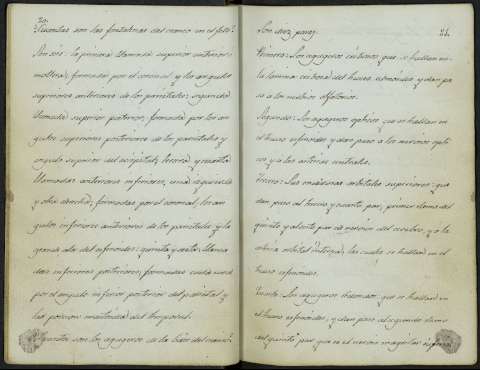 20.
¿Cuantas son las fontanelas del craneo en el feto?
Son seis: la primera llamada superior anterior:
mollera, formada por el coronal y los angulos
superiores anteriores de los parietales; segunda
llamada superior posterior, formada por los an
gulos superiores posteriores de los parietales y
angulo superior del occipital; tercera y cuarta
llamadas anteriores inferiores, una izquierda
y otra derecha, formadas por el coronal, los an
gulos inferiores anteriores de los parietales y la
grande ala del esfenoides: quinta y sexta: llama
das inferiores posteriores, formadas cada una
por el angulo inferior posterior del parietal y
las porcion mastoidea del temporal.
¿Cuantos son los agugeros de la base del craneo?
21.
Son diez pares.
Primero: Los agugeros cribosos que se hallan en
la lamina cribosa del hueso etmoides y dan pa
so a los nervios olfatorios.
Segundo: Los agugeros opticos que se hallan en
el hueso esfenoides y dan paso a los nervios opti
cos y a las arterias centrales.
Tercero: Las orbitales superiores que
dan paso al tercero y cuarto par, primer ramo del
quinto y al sexto par de nervios del cerebro, y a la
arteria orbital interna, las cuales se hallan en el
hueso esfenoides.
Cuarto: Los agugeros redondos que se hallan en
el hueso esfenoides, y dan paso al segundo ramo
del quinto par que es el nervio maxilar superior